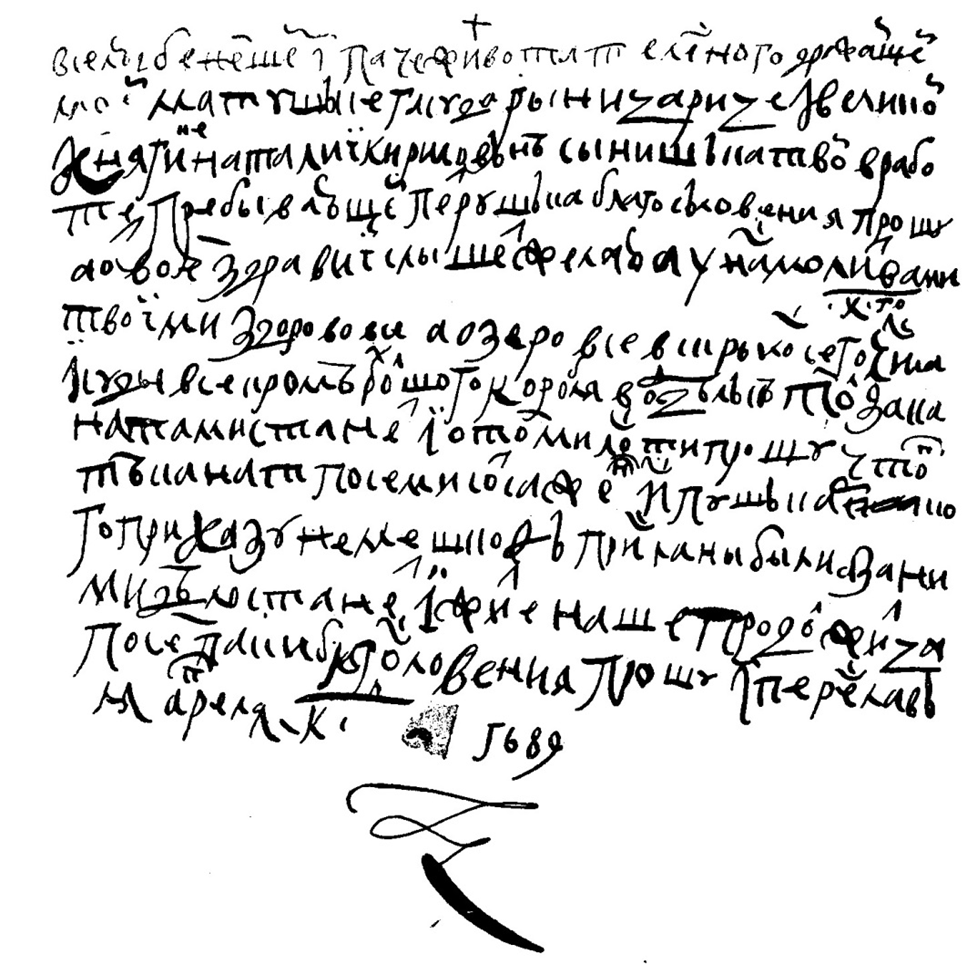 +
вселюбенеше і паче живота телесного дражаше
моеі матушъке гасударыни царице і великоі
княгине наталиі кириловънѣ сынишъка твоі в рабо
те пребывающеі петрушъка благословения прошу
а о твоем здравиі слышеть желаю а у нас молитвами
твоіми здорово все а озеро все вскрылос сего 20 г числа
і суды все кромѣ болшого корабля въ отделъке токо за кана
натами станет і о том милости прошу чтоб
тѣ канаты по семисот сажен ис пушъкарско
го приказу не мешкоѳъ присланы были а за ни
ми дѣло станет і житие наше продолжица
по сем паки благословения прошу іс переславъ
ля апреля к.
1689